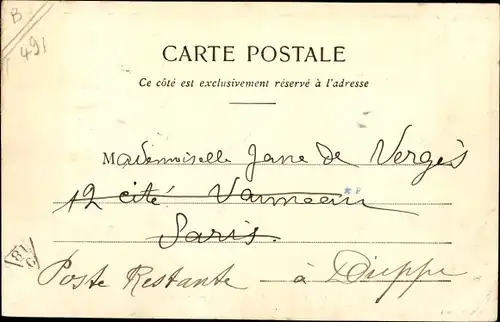 B
491
CARTE POSTALE
Ce côté est exclusivement réservé à l'adresse
Mademoiselle Jane de Vergès
12 cité Vanneau
Paris.
81
6
Poste Restante - à Dieppe